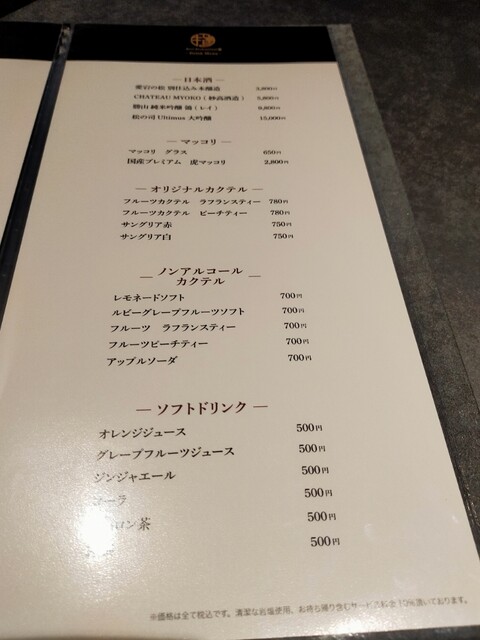 ― 日本酒 ―
愛宕の松 別仕込み本醸造 3,800円
CHATEAU MYOKO ( 妙高酒造 ) 5,800円
勝山 純米吟醸 鴒 (レイ) 8,800円
松の司 Ultimus 大吟醸 15,000円
― マッコリ ―
マッコリ グラス 650円
国産プレミアム 虎マッコリ 2,800円
― オリジナルカクテル ―
フルーツカクテル ラフランスティー 780円
フルーツカクテル ピーチティー 780円
サングリア赤 750円
サングリア白 750円
― ノンアルコール
カクテル ―
レモネードソフト 700円
ルビーグレープフルーツソフト 700円
フルーツ ラフランスティー 700円
フルーツピーチティー 700円
アップルソーダ 700円
― ソフトドリンク ―
オレンジジュース 500円
グレープフルーツジュース 500円
ジンジャエール 500円
ーラ 500円
ロン茶 500円
500円
※価格は全て税込です。清潔なお塩使用、お持ち帰り含むサービス料金10%頂いております。